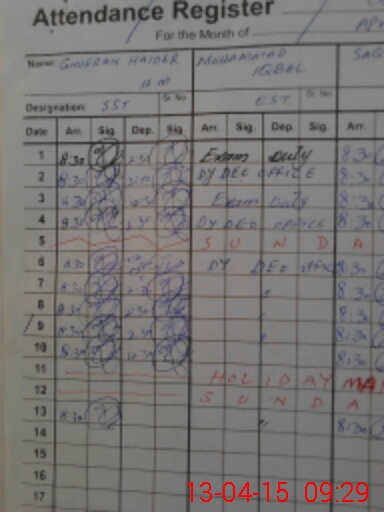 Attendance Register
For the Month of
Name: GHUFRAN HAIDER MUHAMMAD IQBAL
H.M
Designation: SST Sr. No. EST Sr. No.
Date Arr. Sig. Dep. Sig. Arr. Sig. Dep. Sig. Arr.
1 8:30 2:30 Exam Duty 8:30
2 8:30 DY DEO OFFICE 8:30
3 8:30 Exam Duty 8:30
4 8:30 2:30 DY DEO OFFICE 8:30
5 S U N D A
6 8:30 DY DEO OFFICE 8:30
7 8:30 2:30 " 8:30
8 8:30 2:30 8:30
9 8:30 2:30 " 8:30
10 8:30 8:30
11 HOLIDAY MA
12 S U N D A
13 8:30 " 8:30
14
15
16
17
13-04-15 09:29